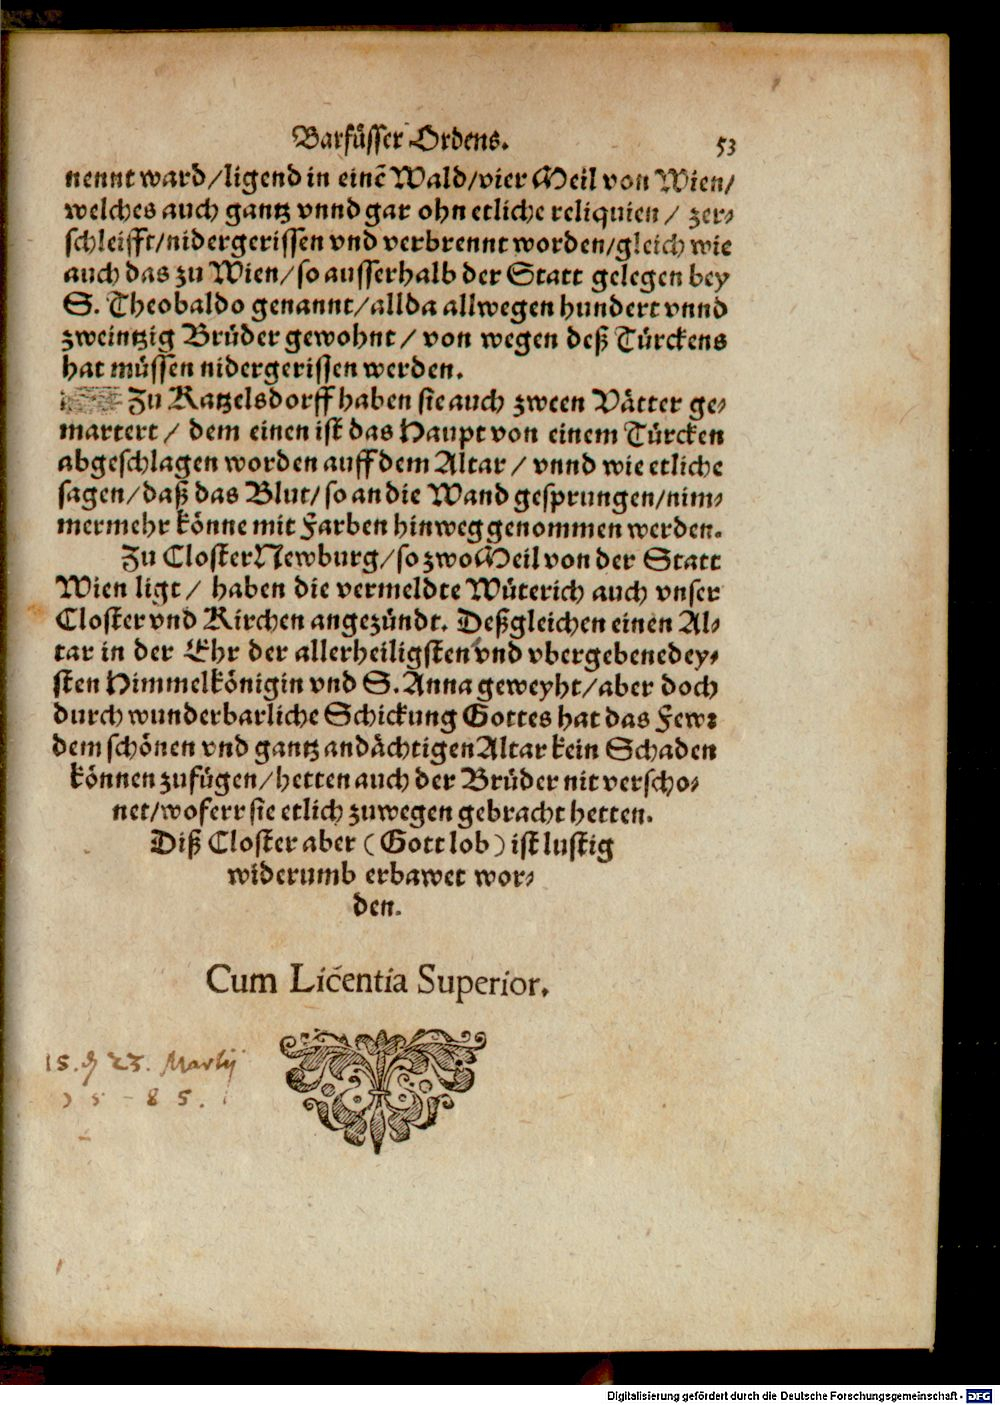 Barfüsser Ordens. 53
nennt ward/ligend in einē Wald/vier Meil von Wien/
welches auch gantz vnnd gar ohn etliche reliquien / zer-
schleifft/nidergerissen vnd verbrennt worden/gleich wie
auch das zu Wien/so ausserhalb der Statt gelegen bey
S. Theobaldo genannt/allda allwegen hundert vnnd
zweintzig Brüder gewohnt / von wegen deß Türckens
hat müssen nidergerissen werden.
Zu Katzelsdorff haben sie auch zween Vätter ge-
martert / dem einen ist das Haupt von einem Türcken
abgeschlagen worden auff dem Altar / vnnd wie etliche
sagen/daß das Blut/so an die Wand gesprungen/nim-
mermehr könne mit Farben hinweg genommen werden.
Zu Closter Newburg/so zwo Meil von der Statt
Wien ligt / haben die vermeldte Wüterich auch vnser
Closter vnd Kirchen angezündt. Deßgleichen einen Al-
tar in der Ehr der allerheiligsten vnd vbergebenedey-
sten Himmelkönigin vnd S. Anna geweyht/aber doch
durch wunderbarliche Schickung Gottes hat das Fewr
dem schönen vnd gantz andächtigen Altar kein Schaden
können zufügen/hetten auch der Brüder nit verscho-
net/woferr sie etlich zuwegen gebracht hetten.
Diß Closter aber (Gott lob) ist lustig
widerumb erbawet wor-
den.
Cum Licentia Superior.
15. 23. Martij
85.
Digitalisierung gefördert durch die Deutsche Forschungsgemeinschaft - DFG